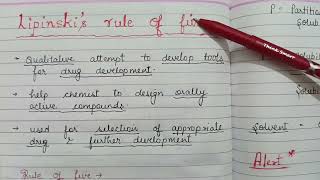 Lipinski's rule of fiv
→ Qualitative attempt to develop tools
for drug development.
→ help chemist to design orally
active compounds.
→ used for selection of appropriate
drug & further development
Rule of five →
P = Partitio
Solub
solubi
solvent =
Alert *
Think Smart